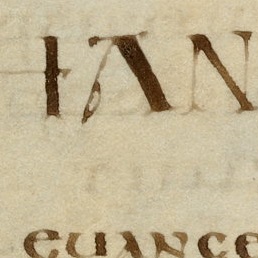 HAN
EUANGE